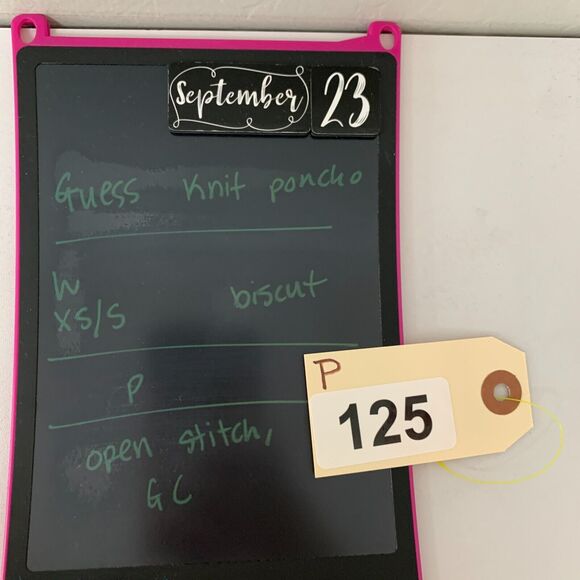 September 23
Guess Knit poncho
W
XS/S biscut
P
P
125
open stitch,
GC